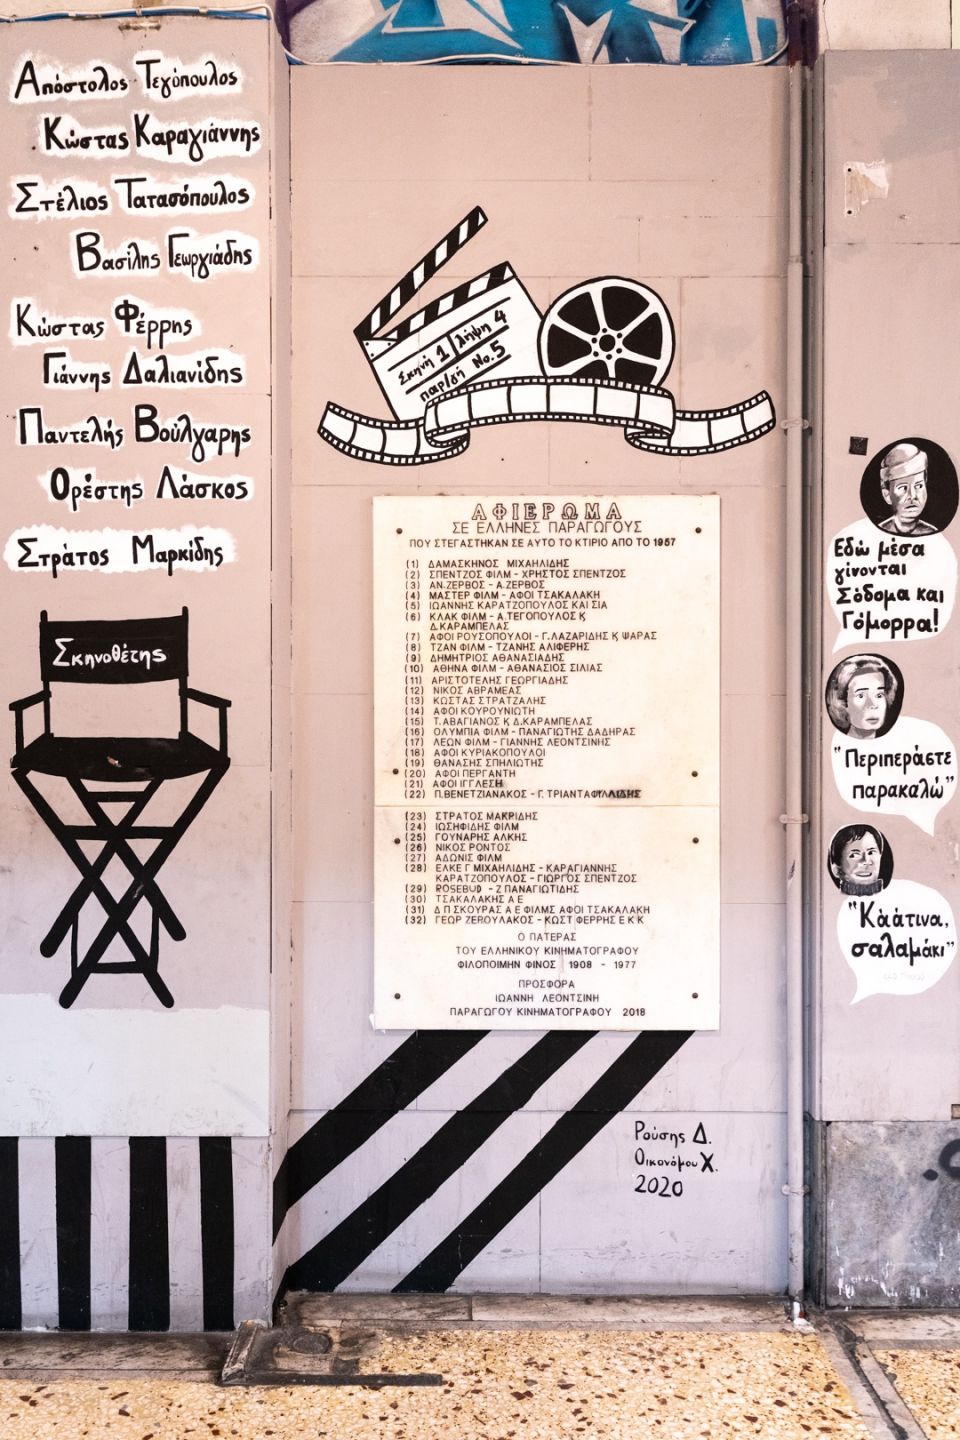 Απόστολος Τεγόπουλος
Κώστας Καραγιάννης
Στέλιος Τατασόπουλος
Βασίλης Γεωργιάδης
Κώστας Φέρρης
Γιάννης Δαλιανίδης
Παντελής Βούλγαρης
Ορέστης Λάσκος
Στράτος Μαρκίδης
Σκηνοθέτης
Σκηνή 1 λήψη 4
παρ/γή Νο.5
ΑΦΙΕΡΩΜΑ
ΣΕ ΕΛΛΗΝΕΣ ΠΑΡΑΓΩΓΟΥΣ
ΠΟΥ ΣΤΕΓΑΣΤΗΚΑΝ ΣΕ ΑΥΤΟ ΤΟ ΚΤΙΡΙΟ ΑΠΟ ΤΟ 1957
(1) ΔΑΜΑΣΚΗΝΟΣ ΜΙΧΑΗΛΙΔΗΣ
(2) ΣΠΕΝΤΖΟΣ ΦΙΛΜ - ΧΡΗΣΤΟΣ ΣΠΕΝΤΖΟΣ
(3) ΑΝ.ΖΕΡΒΟΣ - Α.ΖΕΡΒΟΣ
(4) ΜΑΣΤΕΡ ΦΙΛΜ - ΑΦΟΙ ΤΣΑΚΑΛΑΚΗ
(5) ΙΩΑΝΝΗΣ ΚΑΡΑΤΖΟΠΟΥΛΟΣ ΚΑΙ ΣΙΑ
(6) ΚΛΑΚ ΦΙΛΜ - Α.ΤΕΓΟΠΟΥΛΟΣ Κ
Δ.ΚΑΡΑΜΠΕΛΑΣ
(7) ΑΦΟΙ ΡΟΥΣΟΠΟΥΛΟΙ - Γ.ΛΑΖΑΡΙΔΗΣ Κ ΨΑΡΑΣ
(8) ΤΖΑΝ ΦΙΛΜ - ΤΖΑΝΗΣ ΑΛΙΦΕΡΗΣ
(9) ΔΗΜΗΤΡΙΟΣ ΑΘΑΝΑΣΙΑΔΗΣ
(10) ΑΘΗΝΑ ΦΙΛΜ - ΑΘΑΝΑΣΙΟΣ ΣΙΛΙΑΣ
(11) ΑΡΙΣΤΟΤΕΛΗΣ ΓΕΩΡΓΙΑΔΗΣ
(12) ΝΙΚΟΣ ΑΒΡΑΜΕΑΣ
(13) ΚΩΣΤΑΣ ΣΤΡΑΤΖΑΛΗΣ
(14) ΑΦΟΙ ΚΟΥΡΟΥΝΙΩΤΗ
(15) Τ.ΑΒΑΓΙΑΝΟΣ Κ Δ.ΚΑΡΑΜΠΕΛΑΣ
(16) ΟΛΥΜΠΙΑ ΦΙΛΜ - ΠΑΝΑΓΙΩΤΗΣ ΔΑΔΗΡΑΣ
(17) ΛΕΩΝ ΦΙΛΜ - ΓΙΑΝΝΗΣ ΛΕΟΝΤΣΙΝΗΣ
(18) ΑΦΟΙ ΚΥΡΙΑΚΟΠΟΥΛΟΙ
(19) ΘΑΝΑΣΗΣ ΣΠΗΛΙΩΤΗΣ
(20) ΑΦΟΙ ΠΕΡΓΑΝΤΗ
(21) ΑΦΟΙ ΙΓΓΛΕΣΗ
(22) Π.ΒΕΝΕΤΖΙΑΝΑΚΟΣ - Γ.ΤΡΙΑΝΤΑΦΥΛΛΙΔΗΣ
(23) ΣΤΡΑΤΟΣ ΜΑΚΡΙΔΗΣ
(24) ΙΩΣΗΦΙΔΗΣ ΦΙΛΜ
(25) ΓΟΥΝΑΡΗΣ ΑΛΚΗΣ
(26) ΝΙΚΟΣ ΡΟΝΤΟΣ
(27) ΑΔΩΝΙΣ ΦΙΛΜ
(28) ΕΛΚΕ Γ ΜΙΧΑΗΛΙΔΗΣ - ΚΑΡΑΓΙΑΝΝΗΣ
ΚΑΡΑΤΖΟΠΟΥΛΟΣ - ΓΙΩΡΓΟΣ ΣΠΕΝΤΖΟΣ
(29) ROSEBUD - Ζ ΠΑΝΑΓΙΩΤΙΔΗΣ
(30) ΤΣΑΚΑΛΑΚΗΣ Α Ε
(31) Δ Π ΣΚΟΥΡΑΣ Α Ε ΦΙΛΜΣ ΑΦΟΙ ΤΣΑΚΑΛΑΚΗ
(32) ΓΕΩΡ ΖΕΡΟΥΛΑΚΟΣ - ΚΩΣΤ ΦΕΡΡΗΣ Ε Κ Κ
Ο ΠΑΤΕΡΑΣ
ΤΟΥ ΕΛΛΗΝΙΚΟΥ ΚΙΝΗΜΑΤΟΓΡΑΦΟΥ
ΦΙΛΟΠΟΙΜΗΝ ΦΙΝΟΣ 1908 - 1977
ΠΡΟΣΦΟΡΑ
ΙΩΑΝΝΗ ΛΕΟΝΤΣΙΝΗ
ΠΑΡΑΓΩΓΟΥ ΚΙΝΗΜΑΤΟΓΡΑΦΟΥ 2018
Ρούσης Δ.
Οικονόμου Χ.
2020
Εδώ μέσα
γίνονται
Σόδομα και
Γόμορρα!
"Περιπεράστε
παρακαλώ"
"Κάατινα,
σαλαμάκι"